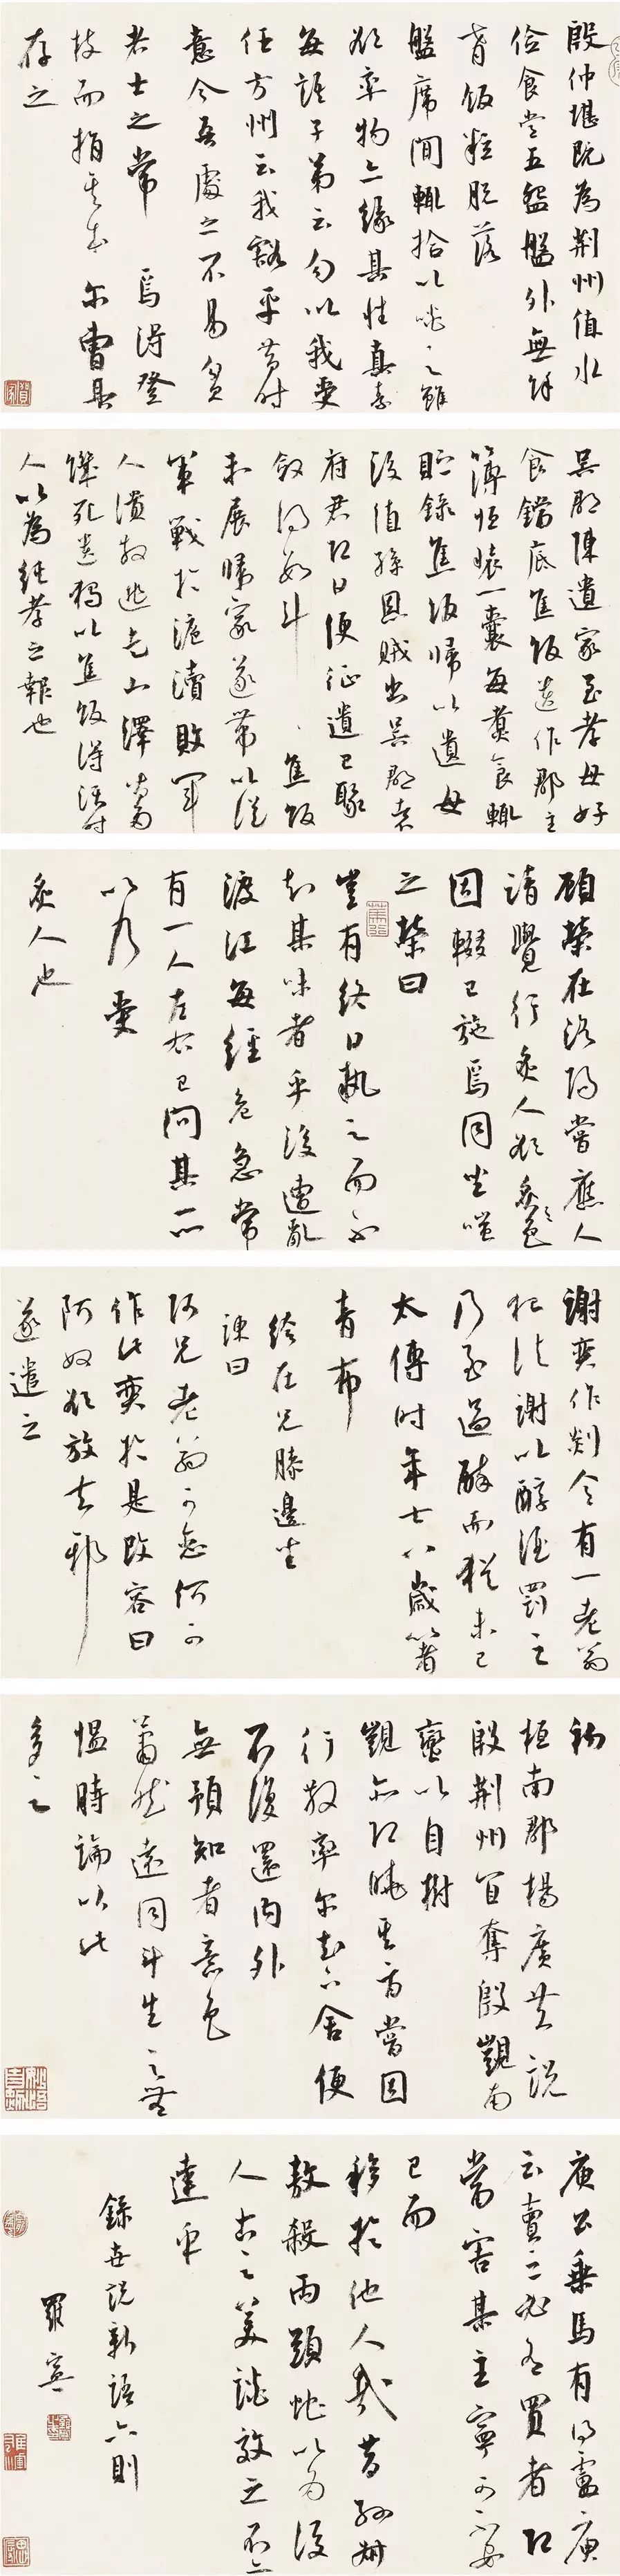 殷仲堪既為荆州值水
俭食常五盌盤外無餘
肴飯粒脱落
盤席間輒拾以噉之雖
欲率物亦缘其性真素
每語子弟云勿以我受
任方州云我豁平昔時
意今吾處之不易貧
者士之常 焉得登
枝而捐其本 尔曹其
存之
吴郡陳遺家至孝母好
食鐺底焦飯遺作郡主
簿恒裝一囊每煮食輒
貯錄焦飯歸以遺母
後值孫恩賊出吴郡袁
府君即日便征遺已聚
敛得數斗 焦飯
未展歸家遂帶以從
軍戰於滬瀆敗軍
人潰散逃走山澤皆多
饑死遺獨以焦飯得活時
人以為純孝之報也
顧榮在洛陽嘗應人
請覺行炙人欲炙之色
因輟己施焉同坐嗤
之榮曰
豈有终日執之而不
知其味者乎後遭亂
渡江每經危急常
有一人左右已問其所
以乃受
炙人也
謝奕作剡令有一老翁
犯法謝以醇酒罰之
乃至過醉而猶未已
太傅時年七八歲著
青布
绔在兄膝邊坐
諫曰
阿兄老翁可念何可
作此奕於是改容曰
阿奴欲放去邪
遂遣之
初
桓南郡楊廣共説
殷荆州宜奪殷覬南
蠻以自樹
覬亦即曉其旨嘗因
行散率尔去下舍便
不復還内外
無預知者意色
蕭然遠同鬥生之無
愠時論以此
多之
庾公乘馬有的盧庾
云賣之必有買者即
當害其主寧可不安
己而
移於他人哉昔孫叔
敖殺兩頭蛇以為後
人古之美談效之不亦
達乎
錄世説新語六則
羅寧